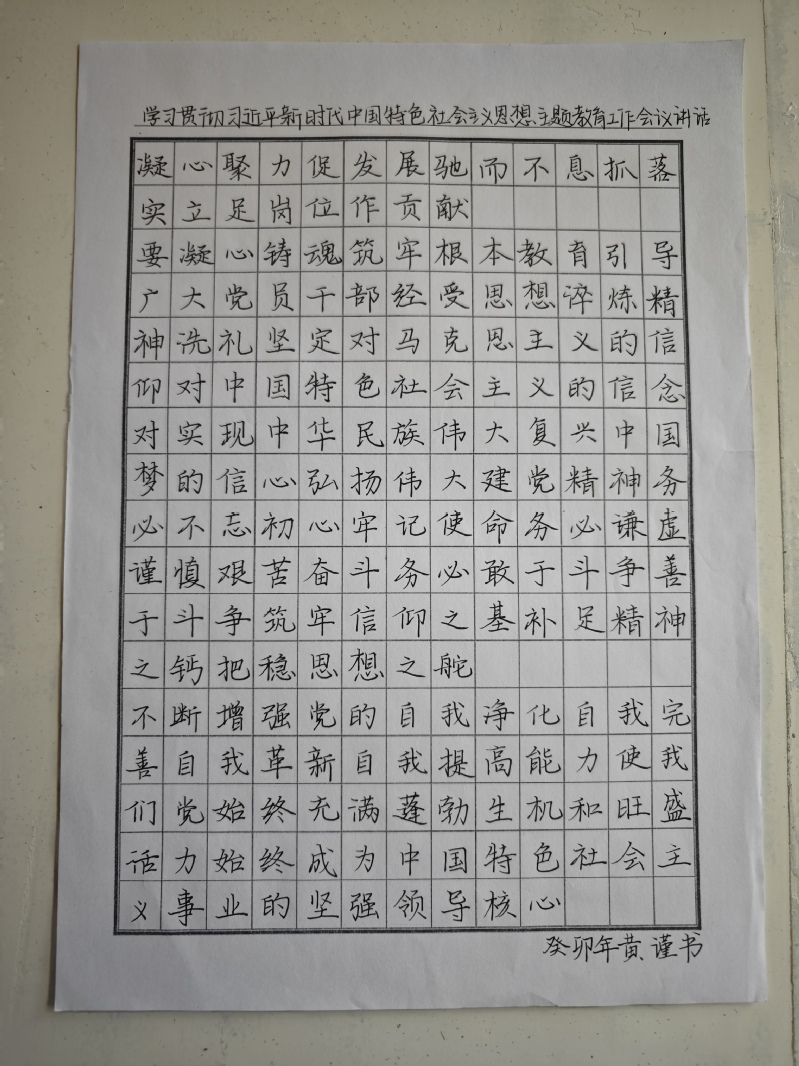 学习贯彻习近平新时代中国特色社会主义思想主题教育工作会议讲话
凝心聚力促发展驰而不息抓落
实立足岗位作贡献
要凝心铸魂筑牢根本教育引导
广大党员干部经受思想淬炼精
神洗礼坚定对马克思主义的信
仰对中国特色社会主义的信念
对实现中华民族伟大复兴中国
梦的信心弘扬伟大建党精神务
必不忘初心牢记使命务必谦虚
谨慎艰苦奋斗务必敢于斗争善
于斗争筑牢信仰之基补足精神
之钙把稳思想之舵
不断增强党的自我净化自我完
善自我革新自我提高能力使我
们党始终充满蓬勃生机和旺盛
活力始终成为中国特色社会主
义事业的坚强领导核心
癸卯年黄谨书